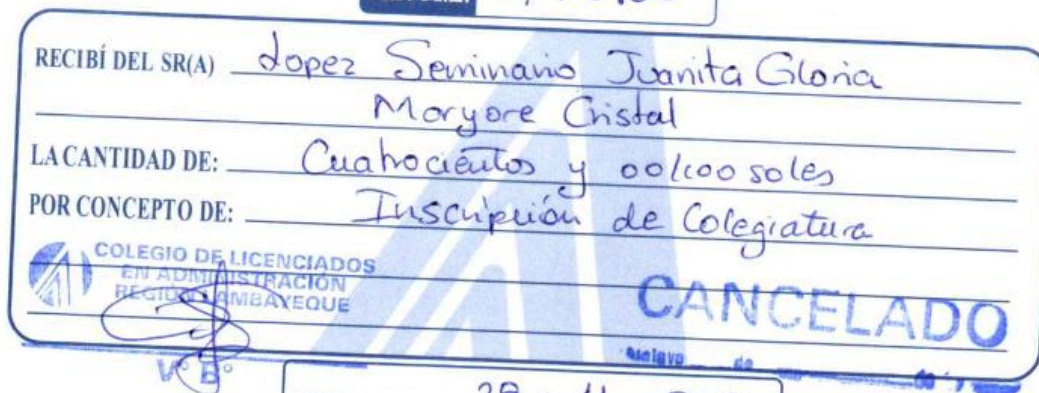 RECIBÍ DEL SR(A) Lopez Seminario Juanita Gloria
Maryore Cristal
LA CANTIDAD DE: Cuatrocientos y 00/100 soles
POR CONCEPTO DE: Inscripción de Colegiatura
COLEGIO DE LICENCIADOS
EN ADMINISTRACIÓN
REGIÓN LAMBAYEQUE
CANCELADO
V° B°